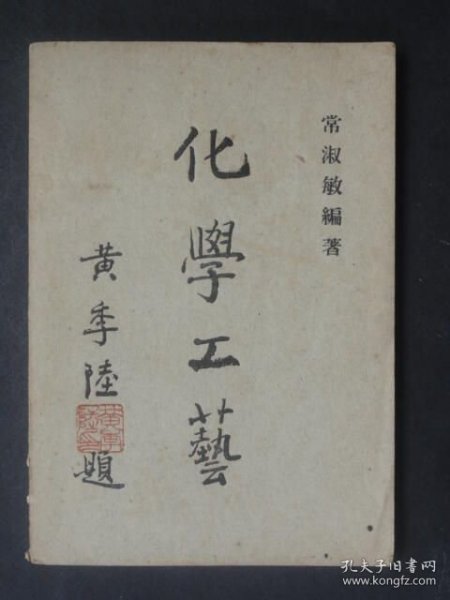 常淑敏編著
化學工藝
黃季陸
題
孔夫子旧书网
www.kongfz.com